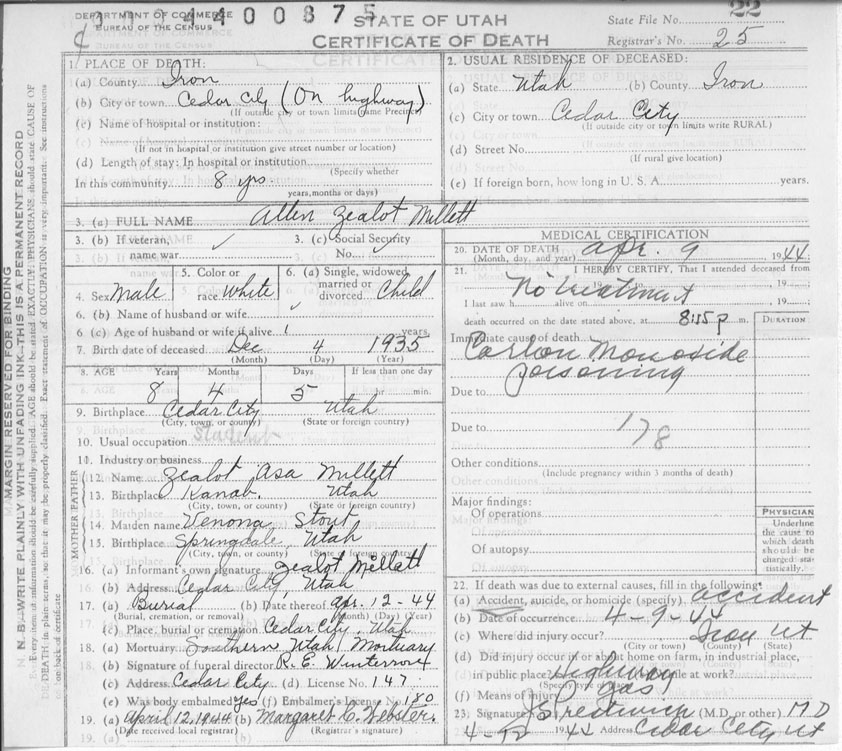 1004400875
DEPARTMENT OF COMMERCE
BUREAU OF THE CENSUS
STATE OF UTAH
CERTIFICATE OF DEATH
State File No. 22
Registrar's No. 25
MARGIN RESERVED FOR BINDING
N. B.—WRITE PLAINLY WITH UNFADING INK—THIS IS A PERMANENT RECORD
Every item of information should be carefully supplied. AGE should be stated EXACTLY. PHYSICIANS should state CAUSE OF
DEATH in plain terms, so that it may be properly classified. Exact statement of OCCUPATION is very important. See instructions
on back of certificate
1. PLACE OF DEATH:
(a) County Iron
(b) City or town Cedar City (On highway)
(If outside city or town limits name Precinct)
(c) Name of hospital or institution:
(If not in hospital or institution give street number or location)
(d) Length of stay: In hospital or institution
(Specify whether
In this community 8 yrs
years, months or days)
2. USUAL RESIDENCE OF DECEASED:
(a) State Utah (b) County Iron
(c) City or town Cedar City
(If outside city or town limits write RURAL)
(d) Street No.
(If rural give location)
(e) If foreign born, how long in U. S. A. years.
3. (a) FULL NAME Allen Zealot Millett
3. (b) If veteran, name war
3. (c) Social Security No.
4. Sex Male
5. Color or race White
6. (a) Single, widowed, married or divorced Child
6. (b) Name of husband or wife
6. (c) Age of husband or wife if alive years.
7. Birth date of deceased Dec 4 1935
(Month) (Day) (Year)
8. AGE Years Months Days If less than one day
8 4 5 hr. min.
9. Birthplace Cedar City Utah
(City, town, or county) (State or foreign country)
10. Usual occupation Student
11. Industry or business
FATHER
12. Name Zealot Asa Millett
13. Birthplace Kanab. Utah
(City, town, or county) (State or foreign country)
MOTHER
14. Maiden name Venona Stout
15. Birthplace Springdale, Utah
(City, town, or county) (State or foreign country)
16. (a) Informant's own signature Zealot Millett
(b) Address Cedar City, Utah
17. (a) Burial (b) Date thereof Apr. 12-44
(Burial, cremation, or removal) (Month) (Day) (Year)
(c) Place, burial or cremation Cedar City, Utah
18. (a) Mortuary Southern Utah Mortuary
(b) Signature of funeral director
(c) Address Cedar City (d) License No. 147
(e) Was body embalmed yes (f) Embalmer's License No. 180
19. (a) April 12, 1944 (b) Margaret C. Webster
(Date received local registrar) (Registrar's signature)
MEDICAL CERTIFICATION
20. DATE OF DEATH Apr. 9 1944
(Month, day, and year)
21. I HEREBY CERTIFY, That I attended deceased from
No treatment , 19
I last saw h alive on , 19
death occurred on the date stated above, at 8:15 p m.
DURATION
Immediate cause of death
Carbon Monoxide
poisoning
Due to
Due to 178
Other conditions
(Include pregnancy within 3 months of death)
Major findings:
Of operations
Of autopsy
PHYSICIAN
Underline
the cause to
which death
should be
charged sta-
tistically.
22. If death was due to external causes, fill in the following:
(a) Accident, suicide, or homicide (specify) accident
(b) Date of occurrence 4-9-44
(c) Where did injury occur? Iron Ut
(City or town) (County) (State)
(d) Did injury occur in or about home on farm, in industrial place,
in public place? Highway While at work?
(Specify type of place)
(f) Means of injury gas
23. Signature (M.D. or other) M D
4-12 1944 Address Cedar City Ut